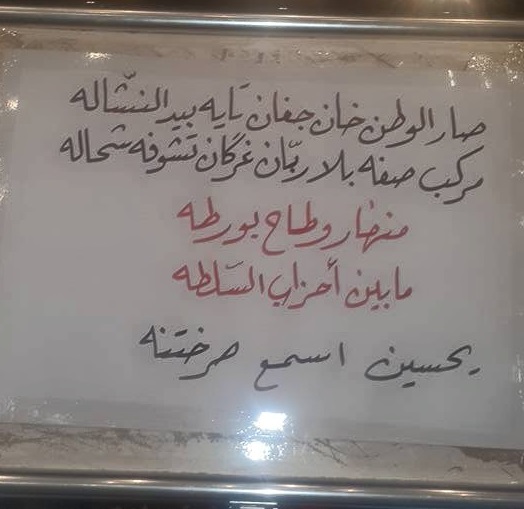 صار الوطن خان جغان تايه بيد النشّاله
مركب صفه بلا ربّان غرگان تشوفه شحاله
منهار وطاح بورطه
مابين أحزاب السّلطه
يحسين اسمع صرختنه